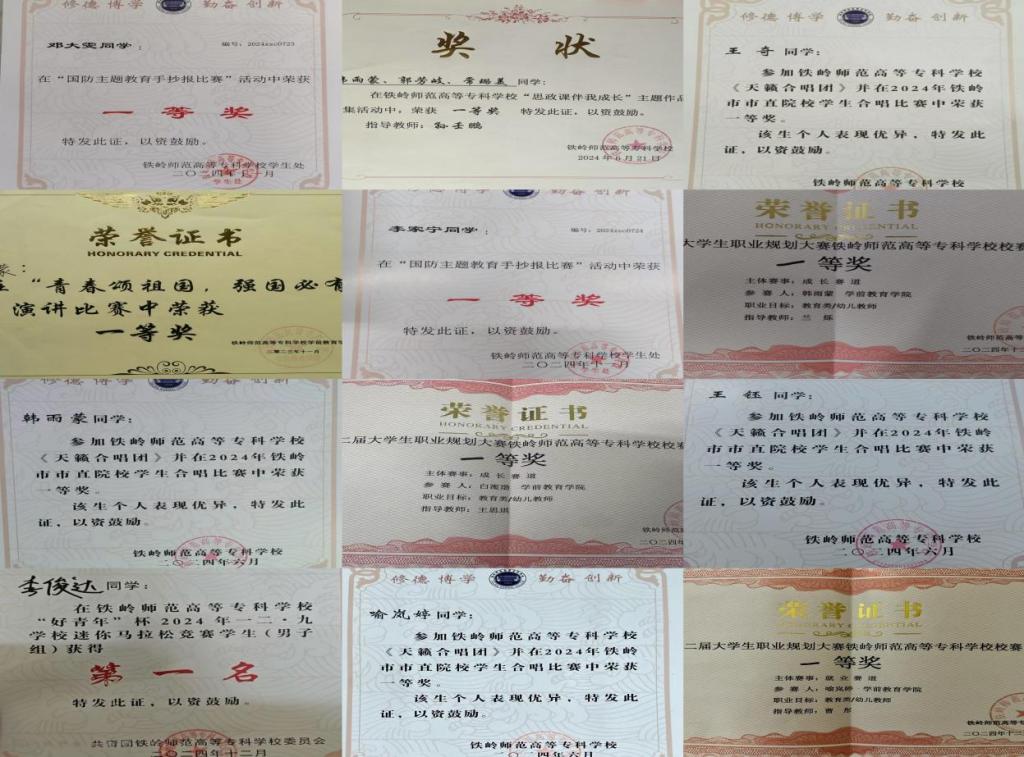 修德 博学 勤奋 创新
邓大雯同学：
编号：2024xxc0723
在“国防主题教育手抄报比赛”活动中荣获
一 等 奖
特发此证，以资鼓励。
铁岭师范高等专科学校学生处
二〇二四年十一月
奖 状
韩雨蒙、郭芳岐、常 同学：
在铁岭师范高等专科学校“思政课伴我成长”主题作品
集活动中，荣获 一等奖 特发此证，以资鼓励。
指导教师：孙壬鹏
铁岭师范高等专科学校
2024年6月21日
修德 博学 勤奋 创新
王 奇 同学：
参加铁岭师范高等专科学校
《天籁合唱团》并在2024年铁岭
市市直院校学生合唱比赛中荣获
一等奖。
该生个人表现优异，特发此
证，以资鼓励。
铁岭师范高等专科学校
荣誉证书
HONORARY CREDENTIAL
蒙：
在“青春颂祖国，强国必有
演讲比赛中荣获
一等奖
铁岭师范高等专科学校学前教育学
二零二三年十一月
修德 博学 勤奋 创新
李家宁同学：
编号：2024xxc0724
在“国防主题教育手抄报比赛”活动中荣获
一 等 奖
特发此证，以资鼓励。
铁岭师范高等专科学校学生处
二〇二四年十一月
荣誉证书
HONORARY CREDENTIAL
大学生职业规划大赛铁岭师范高等专科学校校赛
一等奖
主体赛事：成长赛道
参 赛 人：韩雨蒙 学前教育学院
职业目标：教育类/幼儿教师
指导教师：兰 烁
铁岭师范高
二〇二四年十二
修德 博学 勤奋 创新
韩雨蒙同学：
参加铁岭师范高等专科学校
《天籁合唱团》并在2024年铁岭
市市直院校学生合唱比赛中荣获
一等奖。
该生个人表现优异，特发此
证，以资鼓励。
铁岭师范高等专科学校
二〇二四年六月
荣誉证书
HONORARY CREDENTIAL
二届大学生职业规划大赛铁岭师范高等专科学校校赛
一等奖
主体赛事：成长赛道
参 赛 人：白 学前教育学院
职业目标：教育类/幼儿教师
指导教师：王思琪
铁岭师范
二〇二四年
王 钰 同学：
参加铁岭师范高等专科学校
《天籁合唱团》并在2024年铁岭
市市直院校学生合唱比赛中荣获
一等奖。
该生个人表现优异，特发此
证，以资鼓励。
铁岭师范高等专科学校
二〇二四年六月
李俊达同学：
在铁岭师范高等专科学校
“好青年”杯2024年一二·九
学校迷你马拉松竞赛学生（男子
组）获得
第 一 名
特发此证，以资鼓励。
共青团铁岭师范高等专科学校委员会
二〇二四年十二月
修德 博学 勤奋 创新
喻岚婷同学：
参加铁岭师范高等专科学校
《天籁合唱团》并在2024年铁岭
市市直院校学生合唱比赛中荣获
一等奖。
该生个人表现优异，特发此
证，以资鼓励。
铁岭师范高等专科学校
二〇二四年六月
荣誉证书
HONORARY CREDENTIAL
二届大学生职业规划大赛铁岭师范高等专科学校校赛
一等奖
主体赛事：就业赛道
参 赛 人：喻岚婷 学前教育学院
职业目标：教育类/幼儿教师
指导教师：曹 彤
铁岭师范高
二〇二四年十二